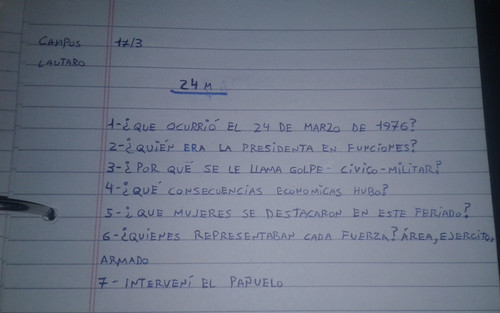 CAMPOS 17/3
LAUTARO
24 M
1-¿QUE OCURRIÓ EL 24 DE MARZO DE 1976?
2-¿QUIÉN ERA LA PRESIDENTA EN FUNCIONES?
3-¿POR QUÉ SE LE LLAMA GOLPE-CIVICO-MILITAR?
4-¿QUÉ CONSECUENCIAS ECONOMICAS HUBO?
5-¿QUE MUJERES SE DESTACARON EN ESTE FERIADO?
6-¿QUIENES REPRESENTABAN CADA FUERZA? ÁREA, EJERCITO,
ARMADO
7- INTERVENÍ EL PAÑUELO